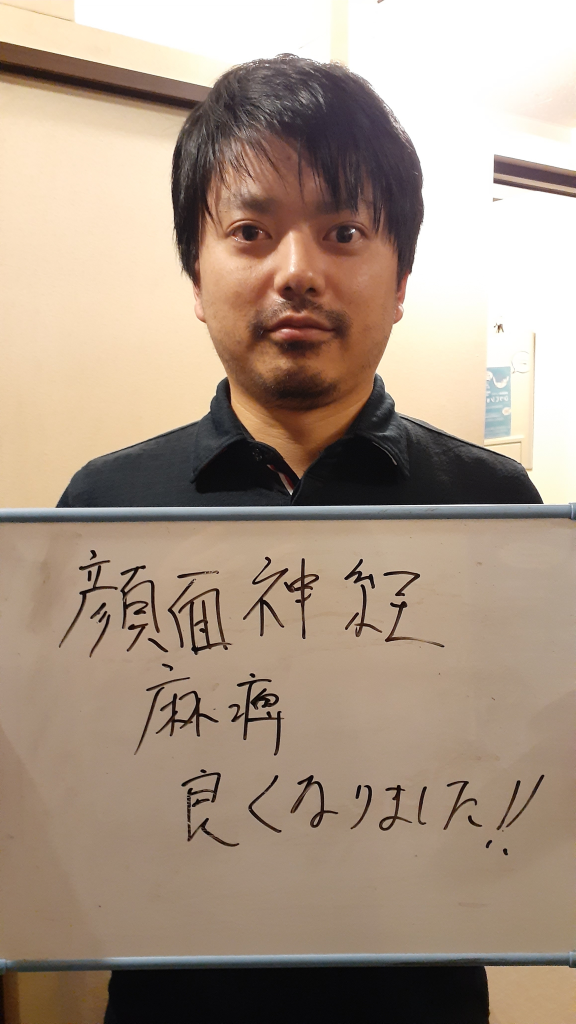 顔面神経
麻痺
良くなりました!!